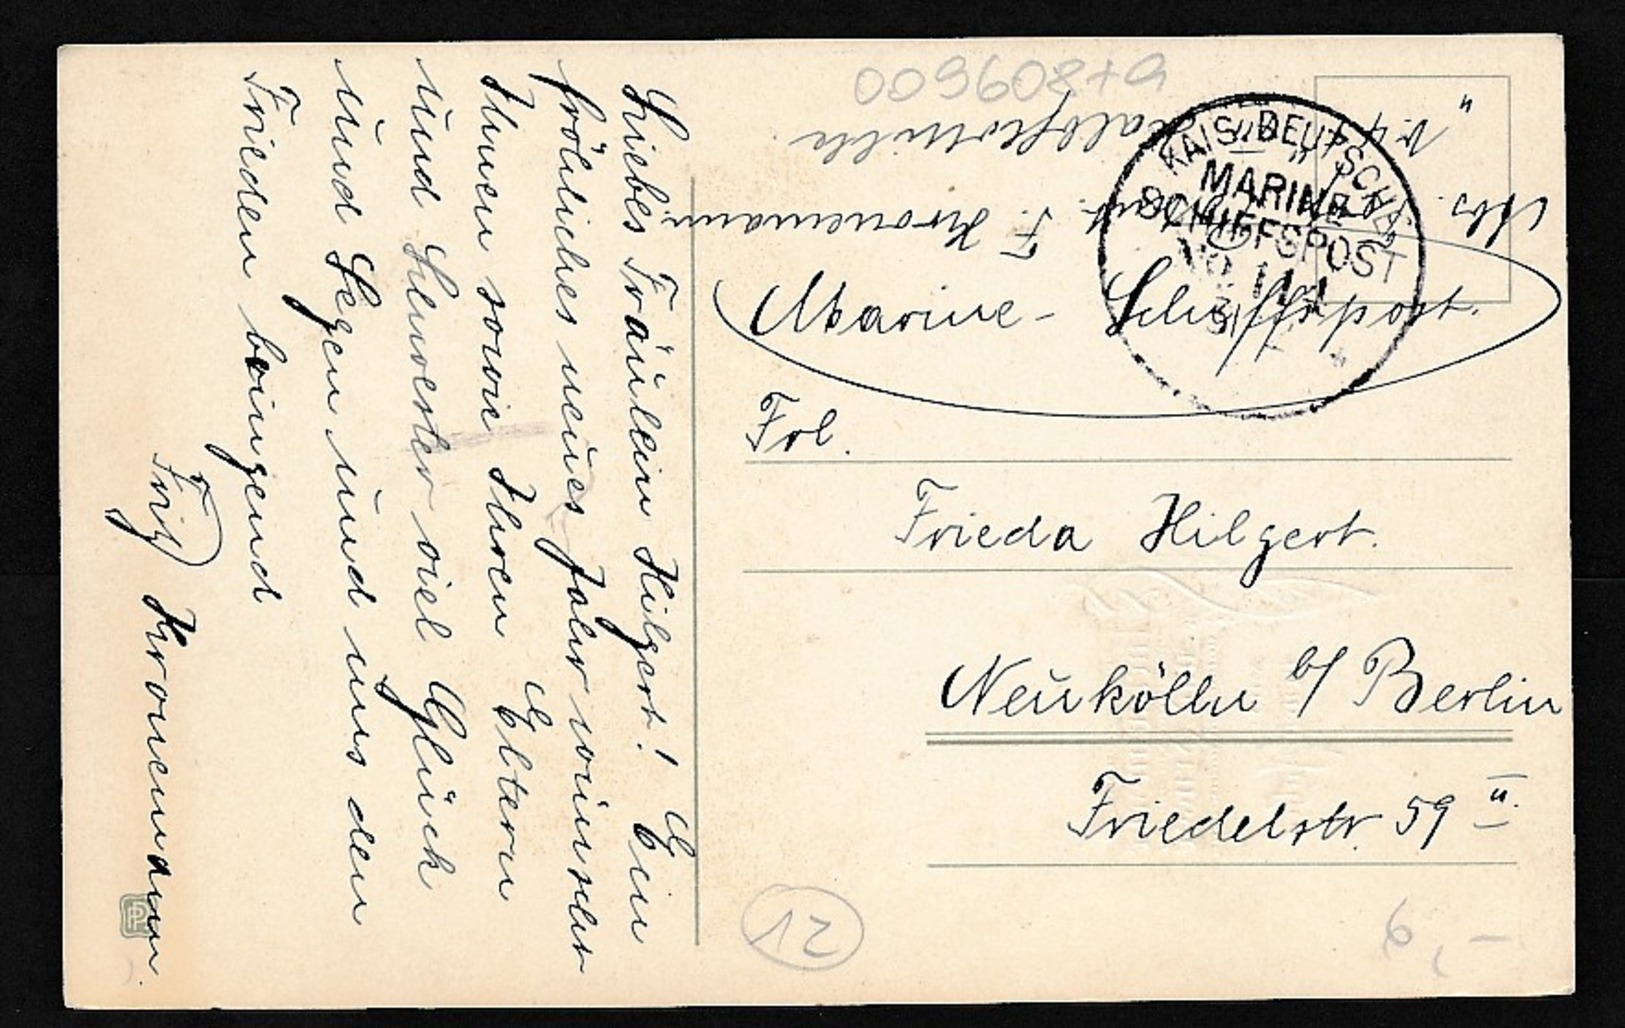 Liebes Fräulein Hilgert! Ein
fröhliches neues Jahr wünscht
Ihnen sowie Ihren Eltern
und Schwester viel Glück
und Segen und uns den
Frieden bringend
Fritz Kronemann.
009608+9
Abs. F. Kronemann
Halbflottille
KAIS. DEUTSCHE
MARINE-
SCHIFFSPOST
No
Marine-Schiffspost.
Frl.
Frieda Hilgert.
Neukölln b/ Berlin
Friedelstr. 59 II.
12
6,-